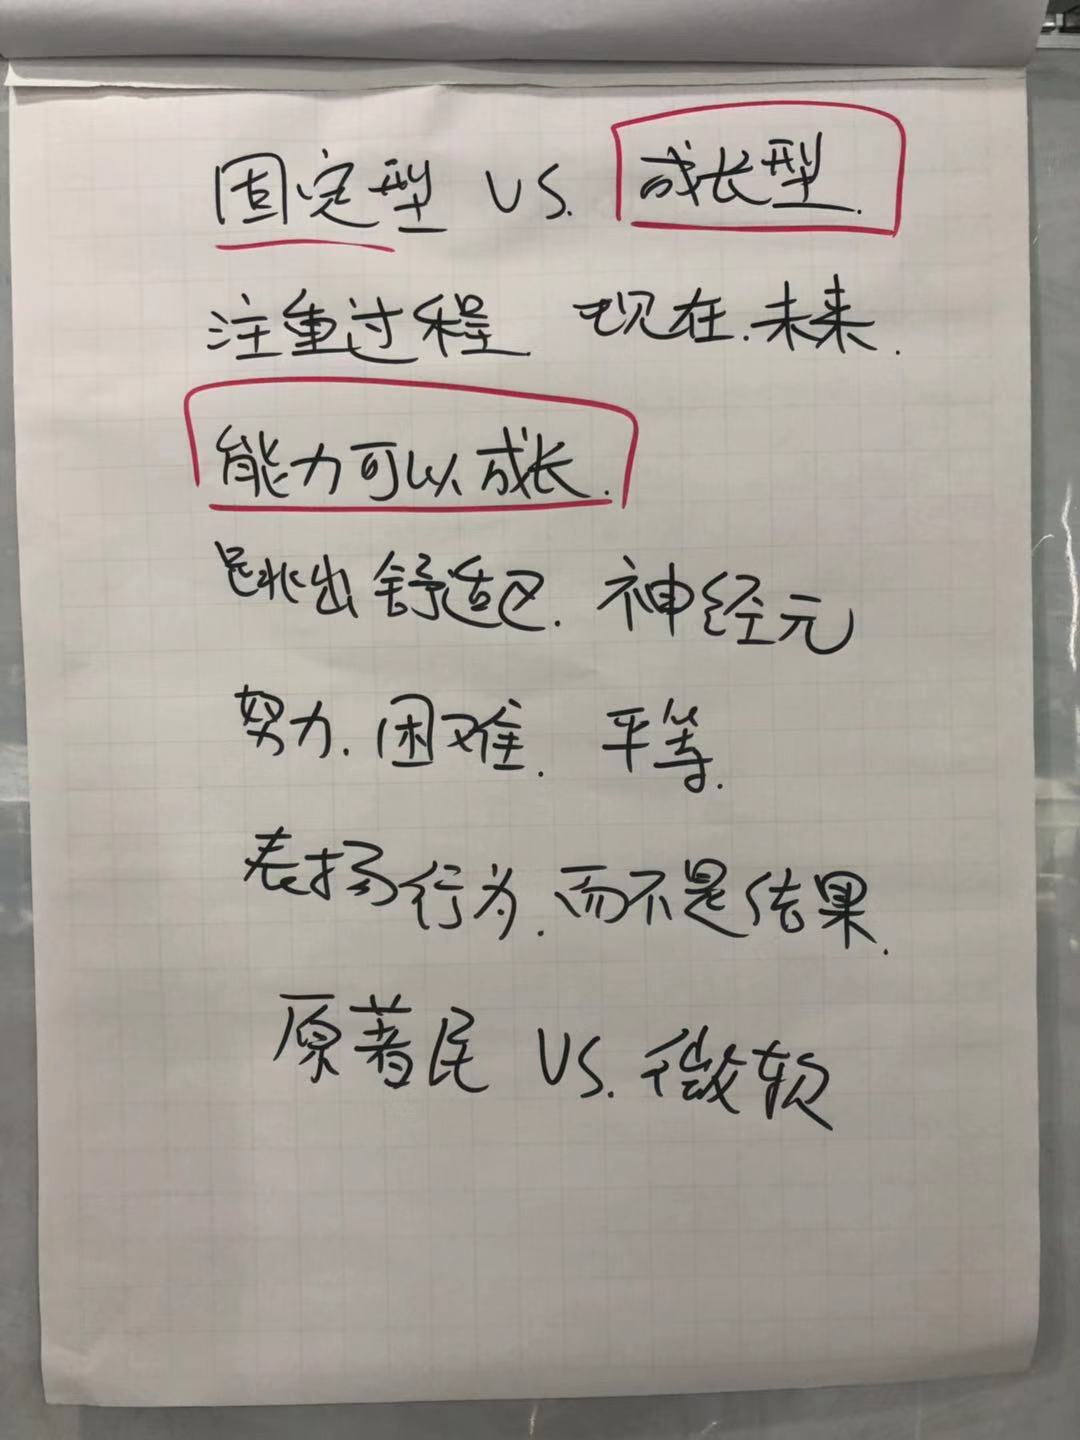 固定型 VS. 成长型.
注重过程 现在.未来.
能力可以成长.
跳出舒适区. 神经元
努力. 困难. 平等.
表扬行为. 而不是结果.
原著民 VS. 微软